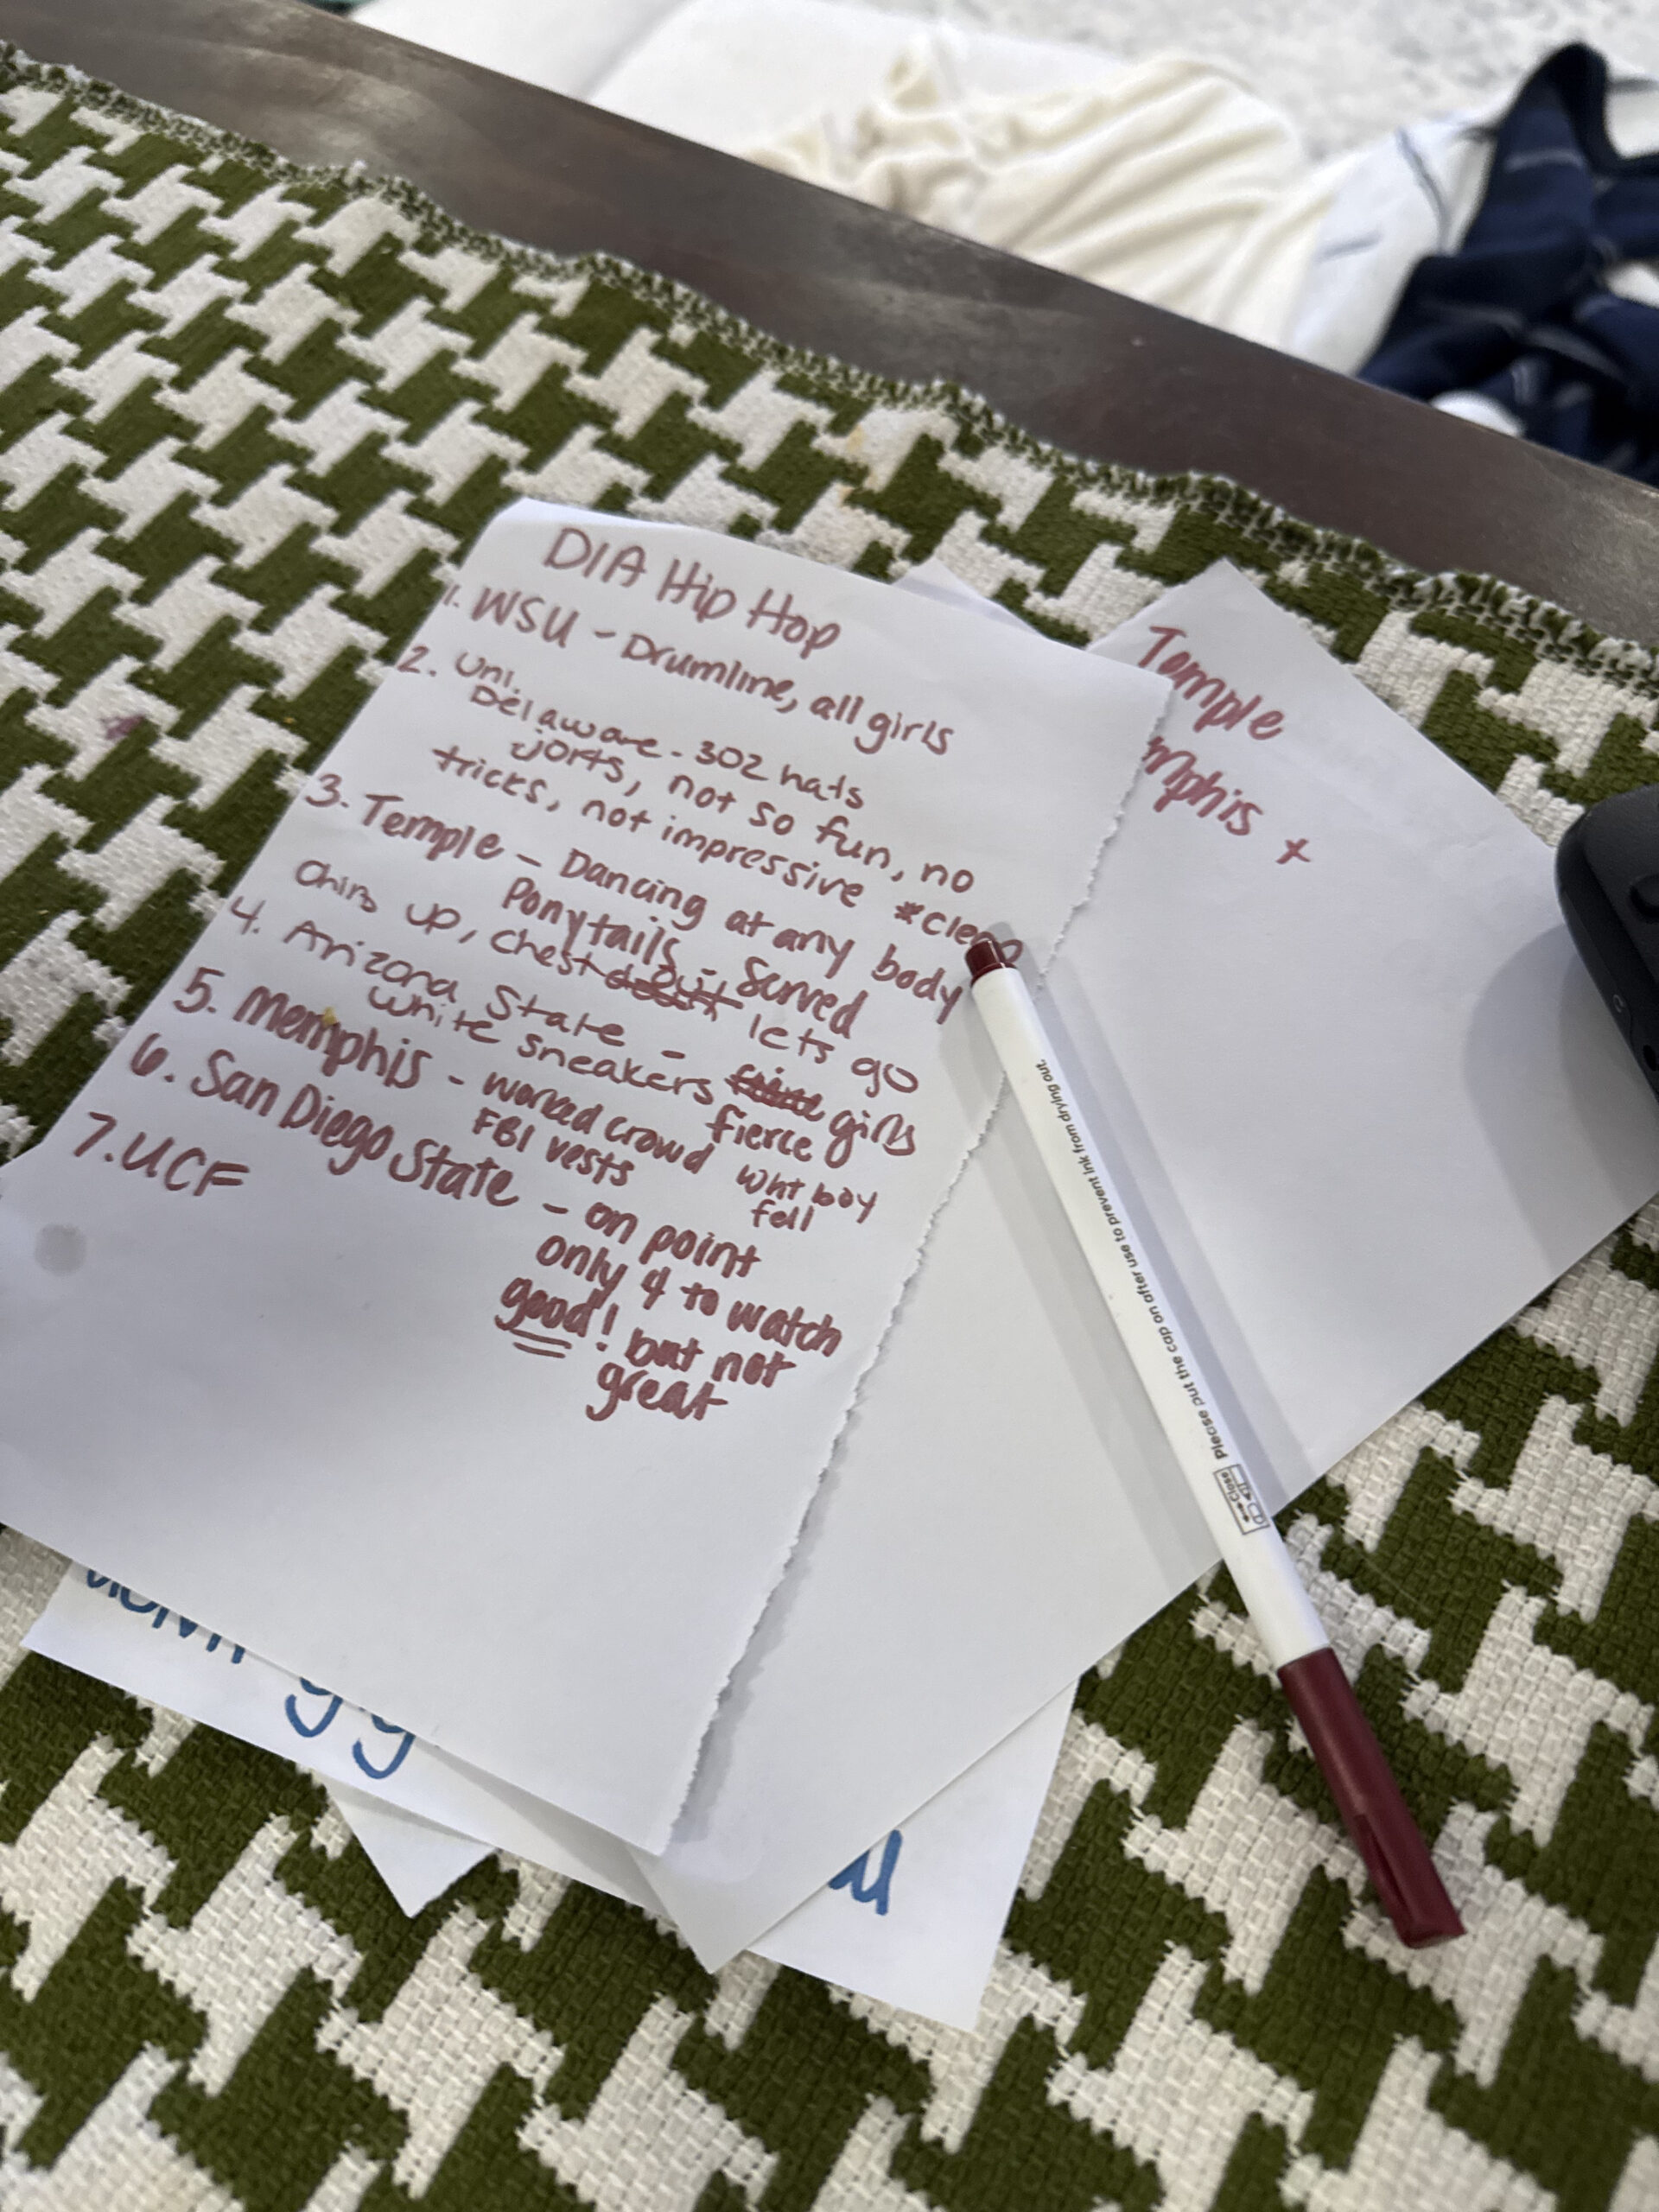 DIA Hip Hop
1. WSU - Drumline, all girls
2. Uni.
Delaware - 302 hats
jorts, not so fun, no
tricks, not impressive *clean
3. Temple - Dancing at any body
Ponytails - Served
Chins up, chest out lets go
4. Arizona State - girls
White sneakers fierce
5. Memphis - worked crowd
FBI vests
wht boy
fell
6. San Diego State - on point
only 4 to watch
good! but not
great
7. UCF
Temple
mphis +
Please put the cap on after use to prevent ink from drying out.
Close